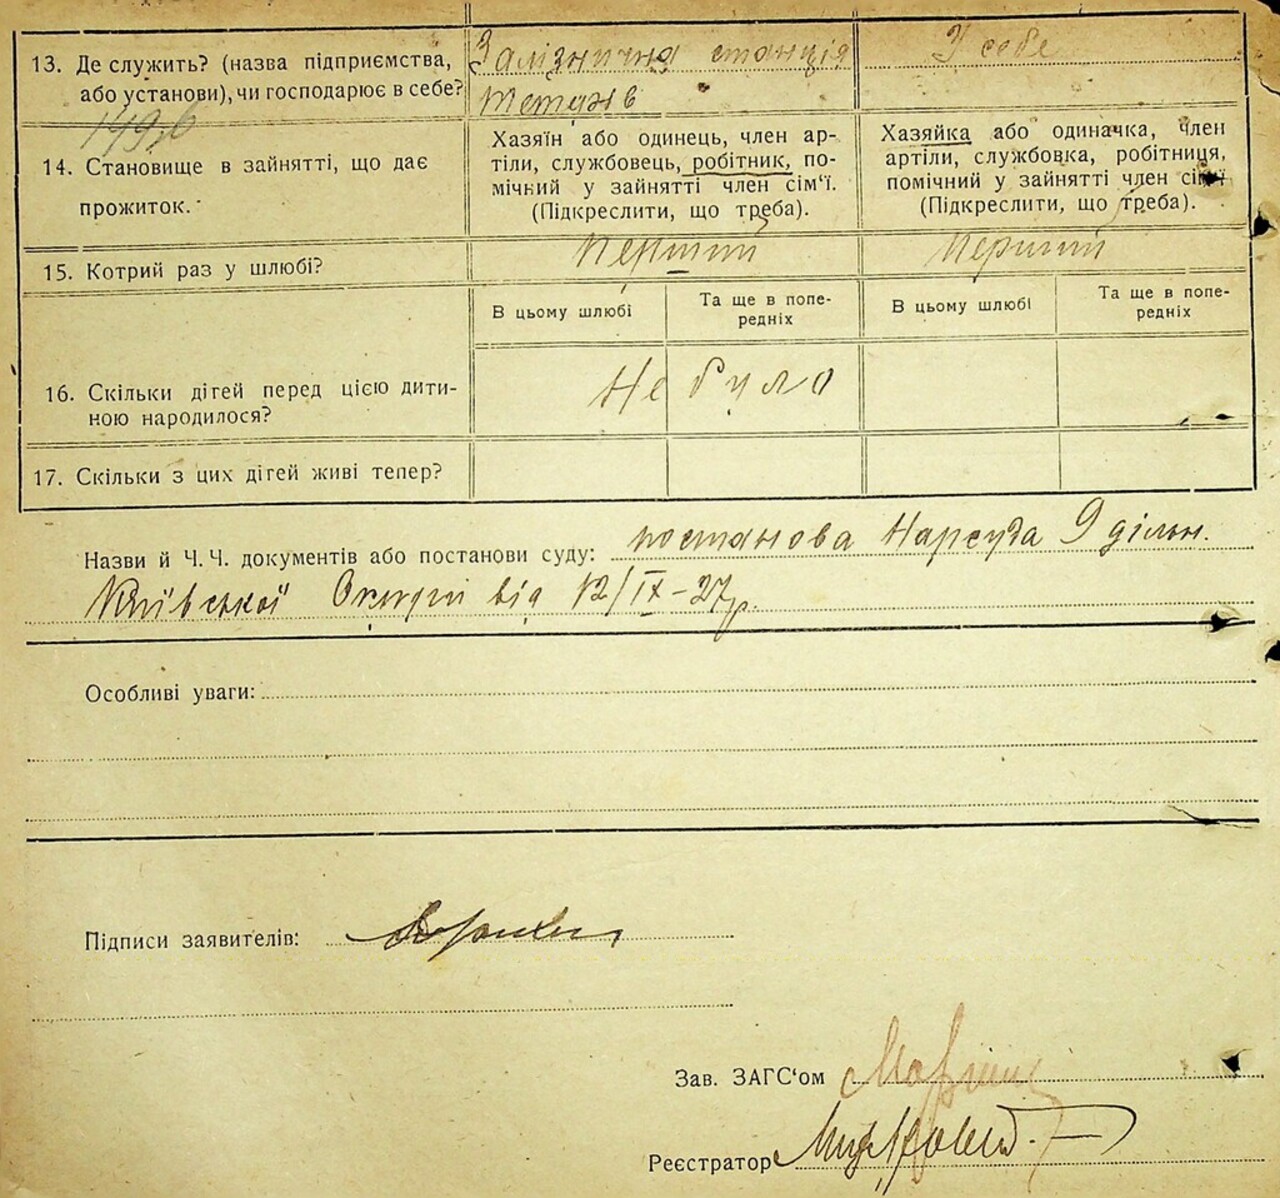 13. Де служить? (назва підприємства, або установи), чи господарює в себе?
Залізнична станція
Тетерів
У себе
14. Становище в зайнятті, що дає прожиток.
Хазяїн або одинець, член ар-
тіли, службовець, робітник, по-
мічний у зайнятті член сім'ї.
(Підкреслити, що треба).
Хазяйка або одиначка, член
артіли, службовка, робітниця,
помічний у зайнятті член сім'ї
(Підкреслити, що треба).
15. Котрий раз у шлюбі?
Перший
Перший
В цьому шлюбі
Та ще в попе-
редніх
В цьому шлюбі
Та ще в попе-
редніх
16. Скільки дітей перед цією дити-
ною народилося?
Не було
17. Скільки з цих дітей живі тепер?
Назви й Ч. Ч. документів або постанови суду: постанова Нарсуда 9 дільн.
Київської Округи від 12/IX-27р.
Особливі уваги:
Підписи заявителів:
Зав. ЗАГС'ом
Реєстратор